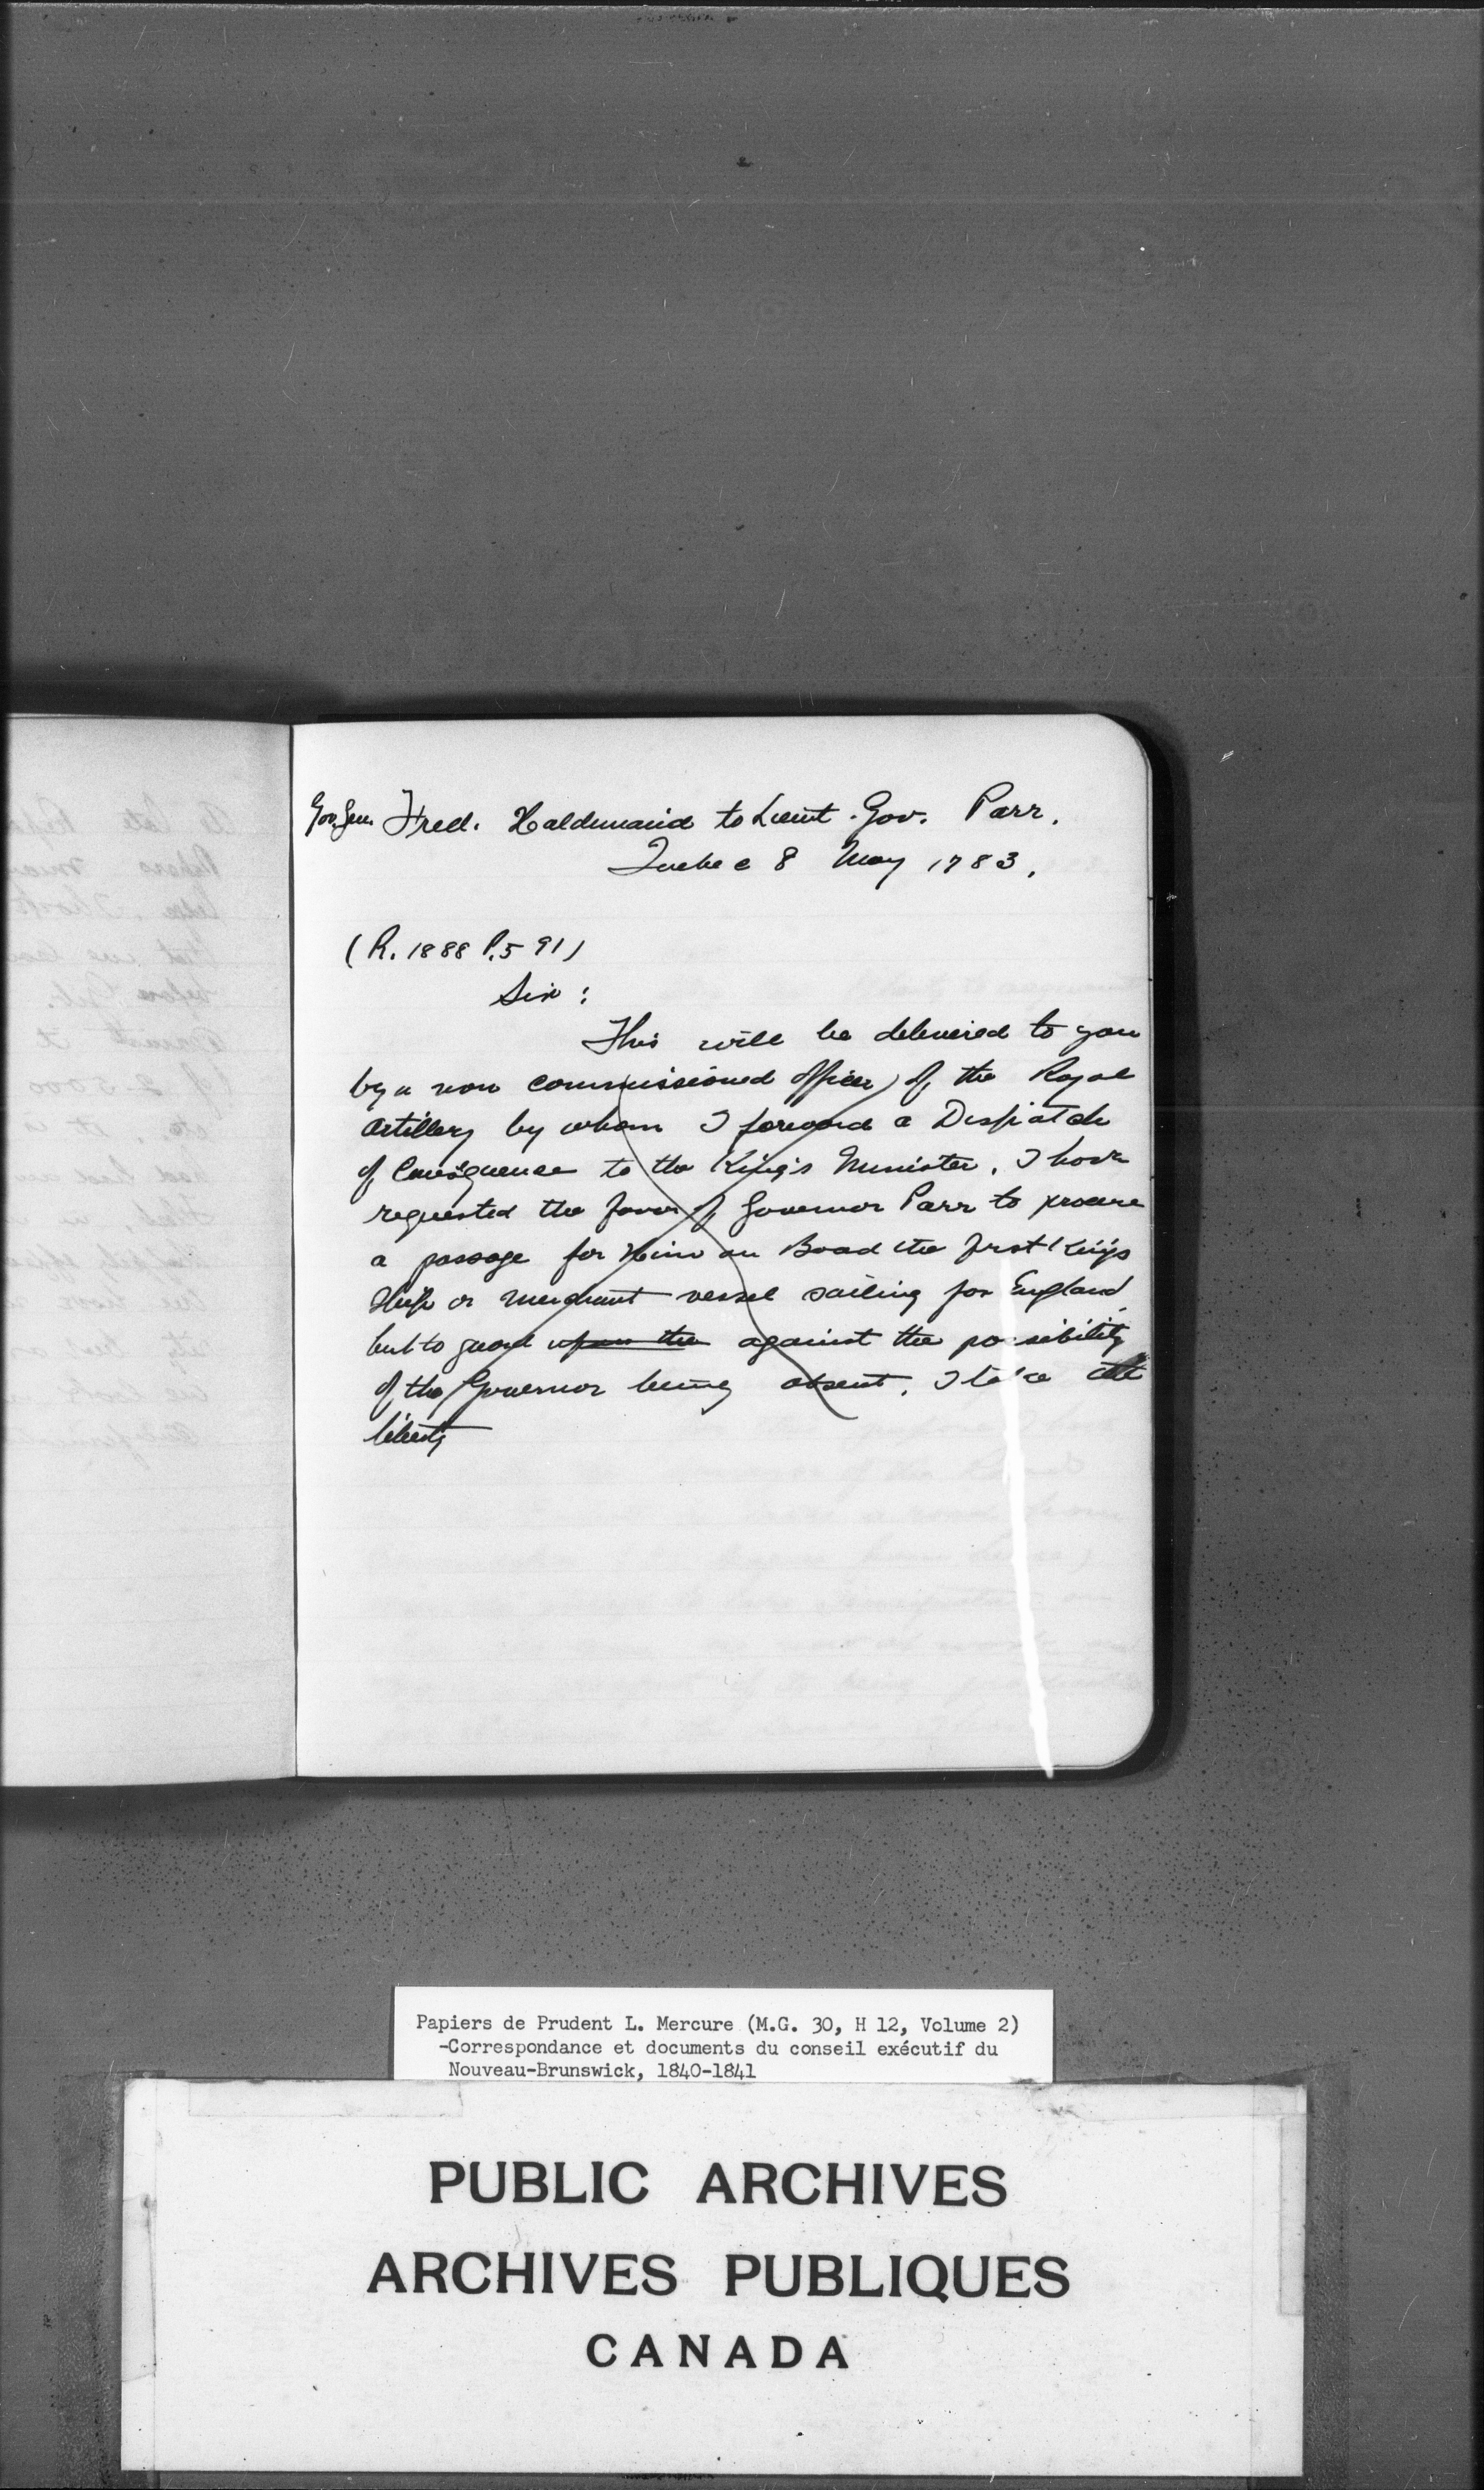 Gov. Gen. Fred. Haldimand to Lieut. Gov. Parr.
Quebec 8 May 1783.
(R. 1888 P. 591)
Sir:
This will be delivered to you
by a non commissioned officer of the Royal
Artillery by whom I forward a Dispatch
of Consequence to the King's Minister. I have
requested the favor of Governor Parr to procure
a passage for Him on Board the first King's
Ship or merchant vessel sailing for England
but to guard upon the against the possibility
of the Governor being absent, I take the
liberty
Papiers de Prudent L. Mercure (M.G. 30, H 12, Volume 2)
-Correspondance et documents du conseil exécutif du
Nouveau-Brunswick, 1840-1841
PUBLIC ARCHIVES
ARCHIVES PUBLIQUES
CANADA